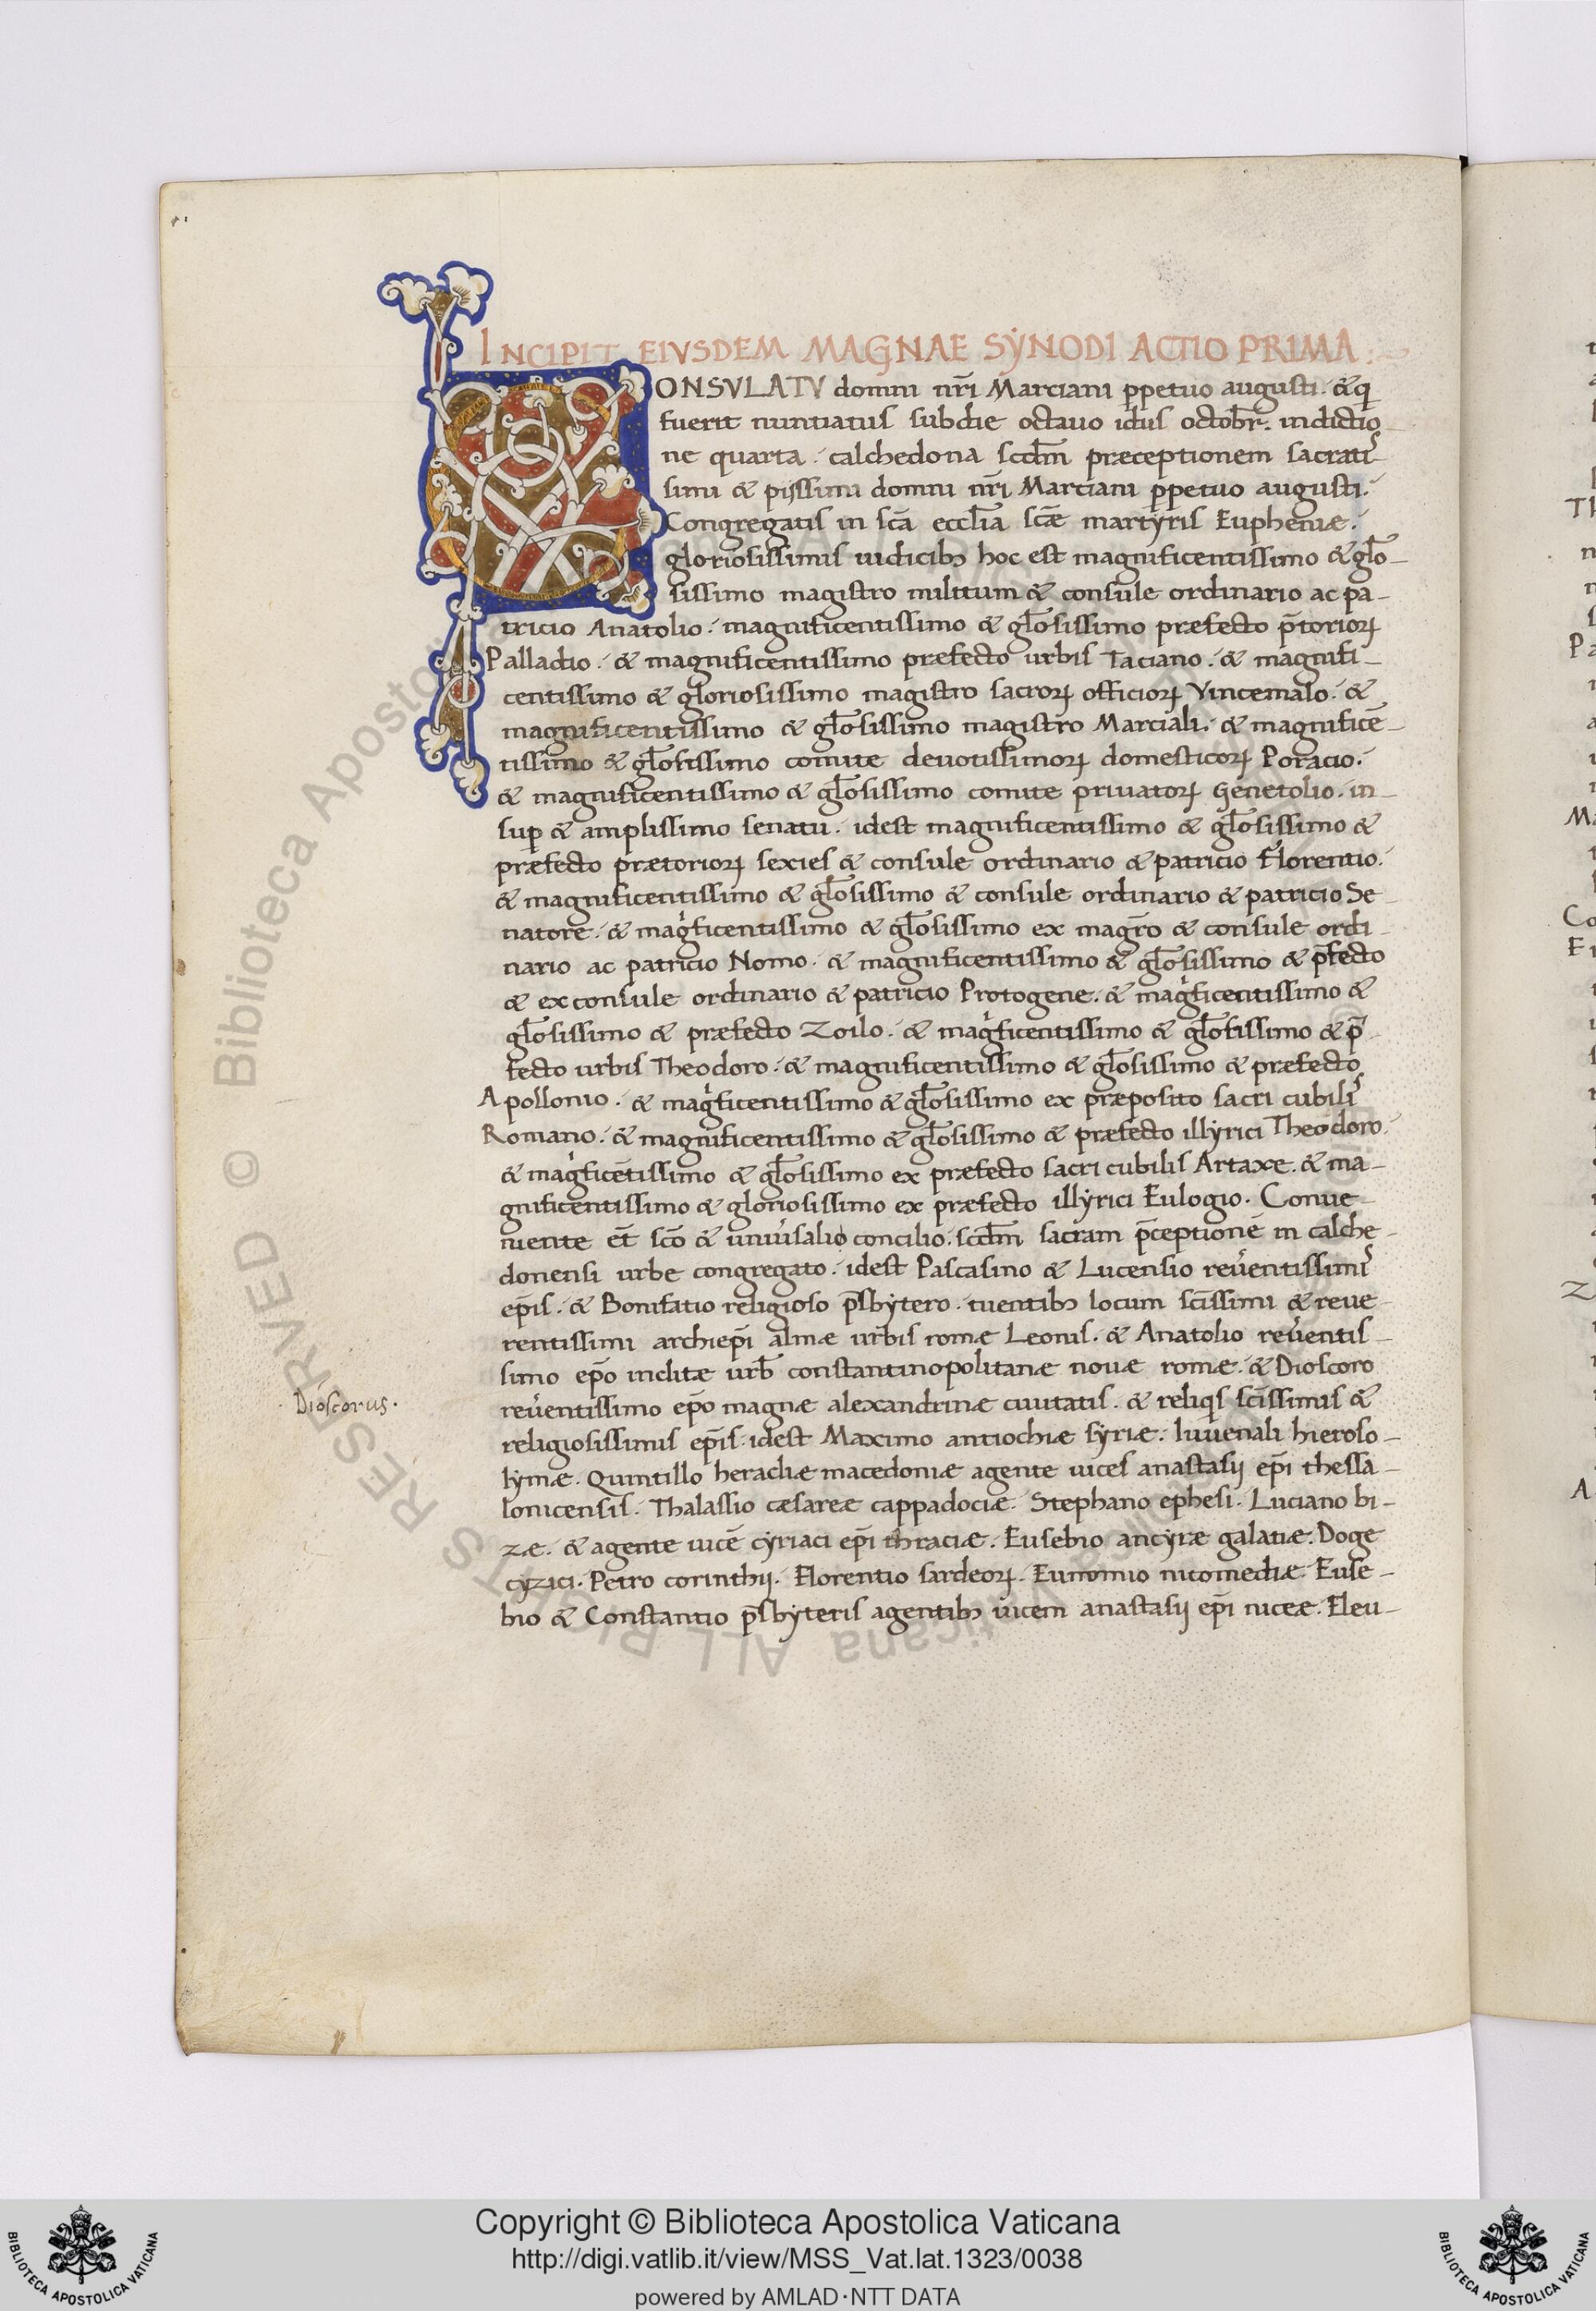 INCIPIT EIVSDEM MAGNAE SẎNODI ACTIO PRIMA
CONSVLATV domni nr̄i Marciani ꝑpetuo augusti. & q
fuerit nuntiatus subdie octauo idus octobr̄. indictio
ne quarta. calchedona scd̄m præceptionem sacratis
simi & pijssimi domni nr̄i Marciani ꝑpetuo augusti.
Congregatis in sc̄a eccl̄ia sc̄æ martẏris Euphemiæ.
gloriosissimis iudicibꝫ hoc est magnificentissimo & gl̄o-
sissimo magistro militum & consule ordinario ac pa-
tricio Anatolio. magnificentissimo & gl̄osissimo præfecto p̄torioꝝ
Palladio. & magnificentissimo præfecto urbis Taciano. & magnifi-
centissimo & gloriosissimo magistro sacroꝝ officioꝝ Vincemalo. &
magnificentissimo & gl̄osissimo magistro Marciali. & magnificē-
tissimo & gl̄osissimo comite deuotissimoꝝ domesticoꝝ Poracio.
& magnificentissimo & gl̄osissimo comite priuatoꝝ Genetolio. in-
suꝑ & amplissimo senatu. idest magnificentissimo & gl̄osissimo &
præfecto prætorioꝝ sexies & consule ordinario & patricio Florentio.
& magnificentissimo & gl̄osissimo & consule ordinario & patricio Se-
natore. & magͥficentissimo & gl̄osissimo ex magr̄o & consule ordi-
nario ac patricio Nomo. & magnificentissimo & gl̄osissimo & p̄fecto
& ex consule ordinario & patricio Protogene. & magͥficentissimo &
gl̄osissimo & præfecto Zoilo. & magͥficentissimo & gl̄osissimo & p̄-
fecto urbis Theodoro. & magnificentissimo & gl̄osissimo & præfecto
Apollonio. & magͥficentissimo & gl̄osissimo ex præposito sacri cubilis
Romano. & magnificentissimo & gl̄osissimo & præfecto illẏrici Theodoro.
& magͥficētissimo & gl̄osissimo ex præfecto sacri cubilis Artaxe. & ma-
gnificentissimo & gloriosissimo ex præfecto illẏrici Eulogio. Conue-
niente et sc̄o & uniu̓salio concilio. scd̄m sacram p̄ceptionē in calche-
donensi urbe congregato. idest Pascasino & Lucensio reu̓entissimis
ep̄is. & Bonifatio religioso p̄sbẏtero. tuentibꝫ locum sc̄issimi & reue-
rentissimi archiep̄i almæ urbis romæ Leonis. & Anatolio reu̓entis-
simo ep̄o inclitæ urb̄ constantinopolitanæ nouæ romæ. & Dioscoro
reu̓entissimo ep̄o magnæ alexandrinæ ciuitatis. & reliqͥs sc̄issimis &
religiosissimis ep̄is. idest Maximo antiochiæ sẏriæ. Iuuenali hieroso-
lẏmæ. Quintillo heracliæ macedoniæ agente uices anastasij ep̄i thessa-
lonicensis. Thalassio cæsareæ cappadociæ. Stephano ephesi. Luciano bi-
zæ. & agente uicē cẏriaci ep̄i thraciæ. Eusebio ancẏræ galatiæ. Doge
cẏzici. Petro corinthij. Florentio sardeoꝝ. Eunomio nicomediæ. Euse-
bio & Constantio p̄sbẏteris agentibꝫ uicem anastasij ep̄i niceæ. Eleu-
.Dioscorus.
Copyright © Biblioteca Apostolica Vaticana
http://digi.vatlib.it/view/MSS_Vat.lat.1323/0038
powered by AMLAD·NTT DATA
BIBLIOTECA APOSTOLICA VATICANA
BIBLIOTECA APOSTOLICA VATICANA